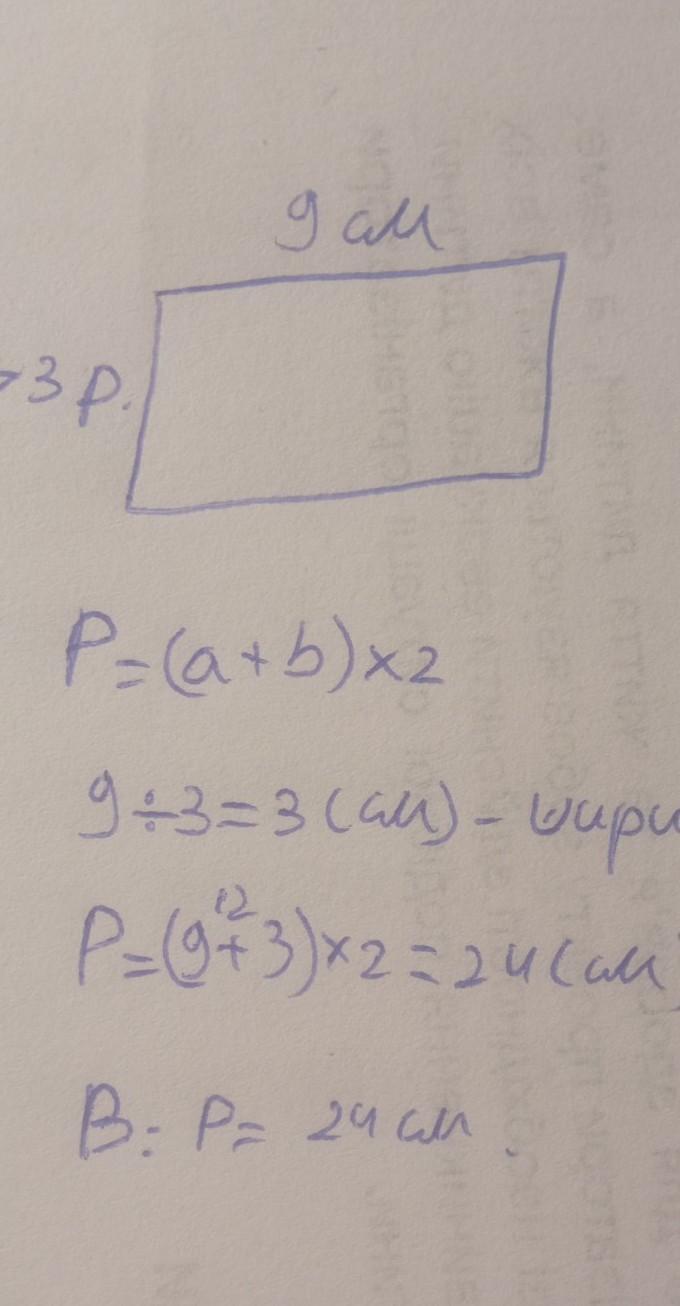 9 см
>3 р.
P=(a+b)×2
9÷3=3 (см) - шири
12
P=(9+3)×2=24(см)
В: P= 24 см.